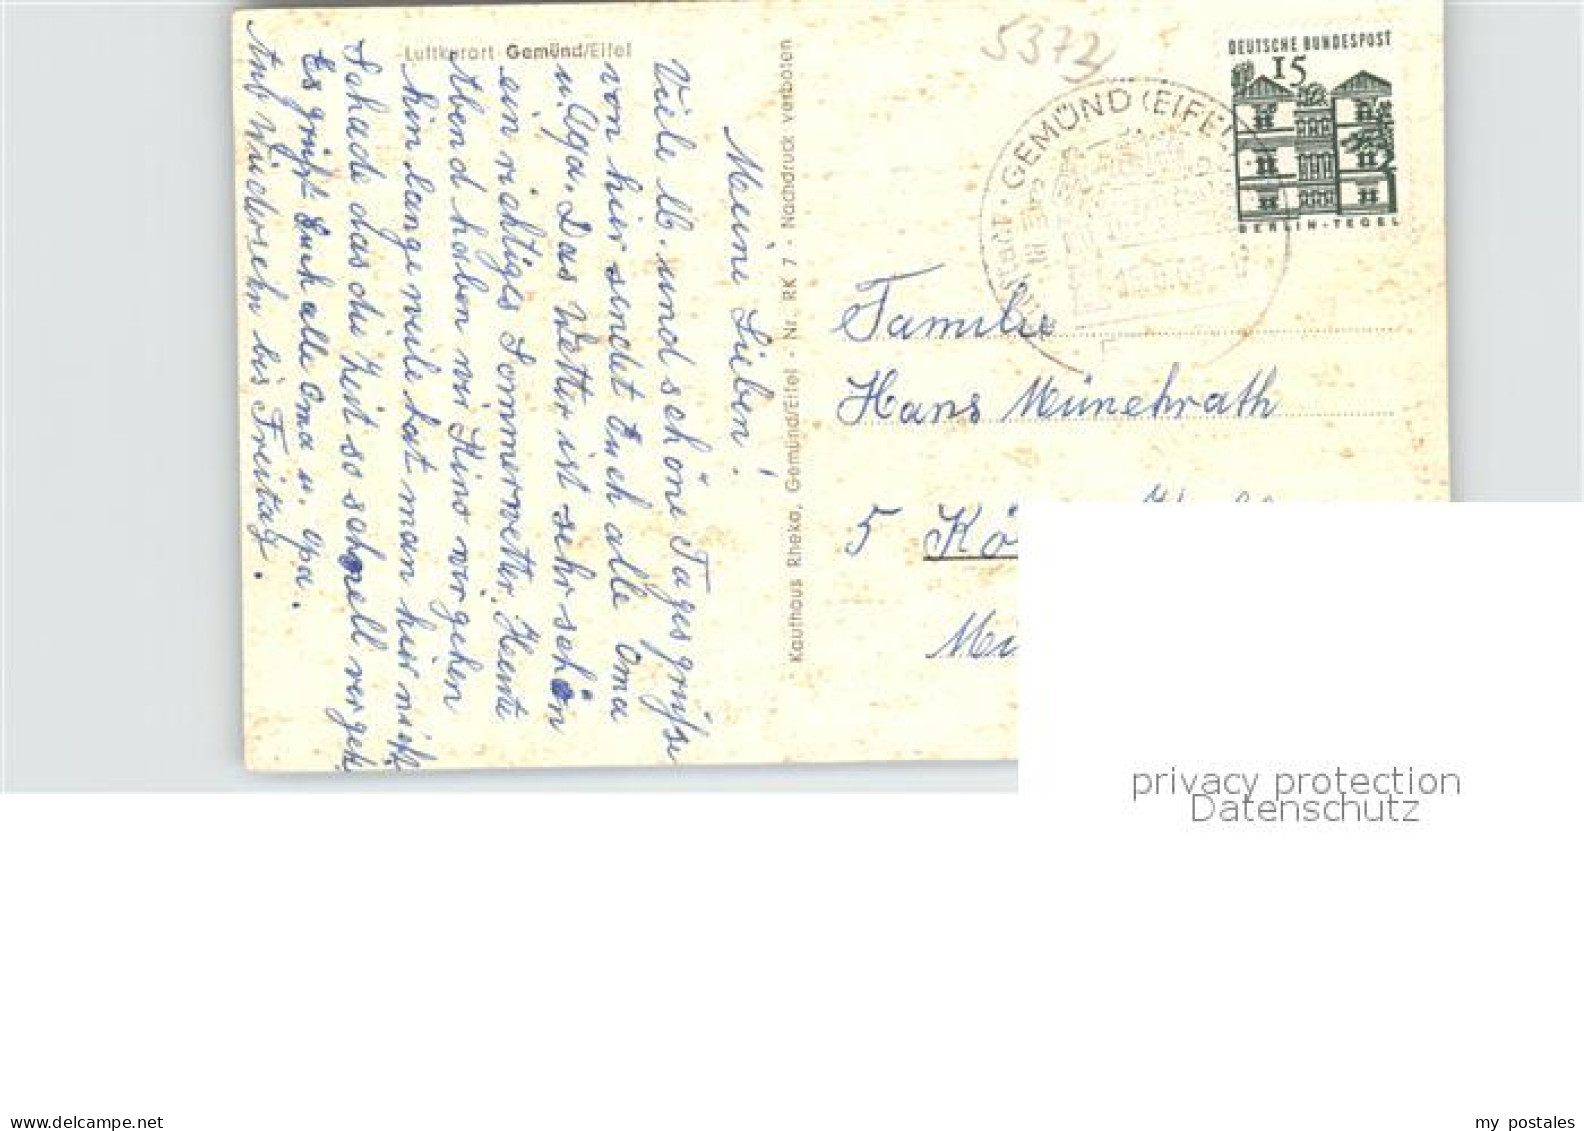 Luftkurort Gemünd/Eifel
Meine Lieben!
Viele lb. und schöne Tagesgrüße
von hier sendet Euch alle Oma
u. Opa. Das Wetter ist sehr schön
ein richtiges Sommerwetter. Heute
Abend haben wir Kino wir gehen
hin langeweile hat man hier nicht
Schade das die Zeit so schnell vergeht
Es grüßt Euch alle Oma u. Opa.
Auf Wiedersehn bis Freitag.
Kaufhaus Rheka, Gemünd/Eifel - Nr. RK 7 - Nachdruck verboten
5373
GEMÜND (EIFEL)
DEUTSCHE BUNDESPOST
15
BERLIN-TEGEL
Familie
Hans Münchrath
5 Kö
privacy protection
Datenschutz
www.delcampe.net
my_postales